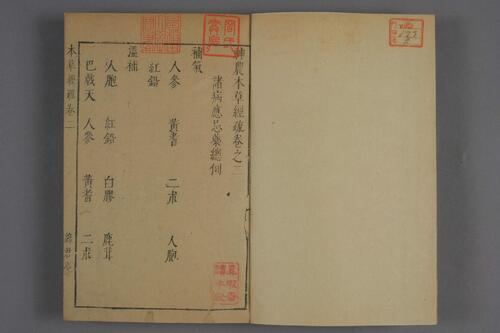 神農本草經疏卷之二
諸病應忌藥總例
補氣
人參 黃耆 二朮 人胞
紅鉛
溫補
人胞 紅鉛 白膠 鹿茸
巴戟天 人參 黃耆 二朮
本草經疏卷二